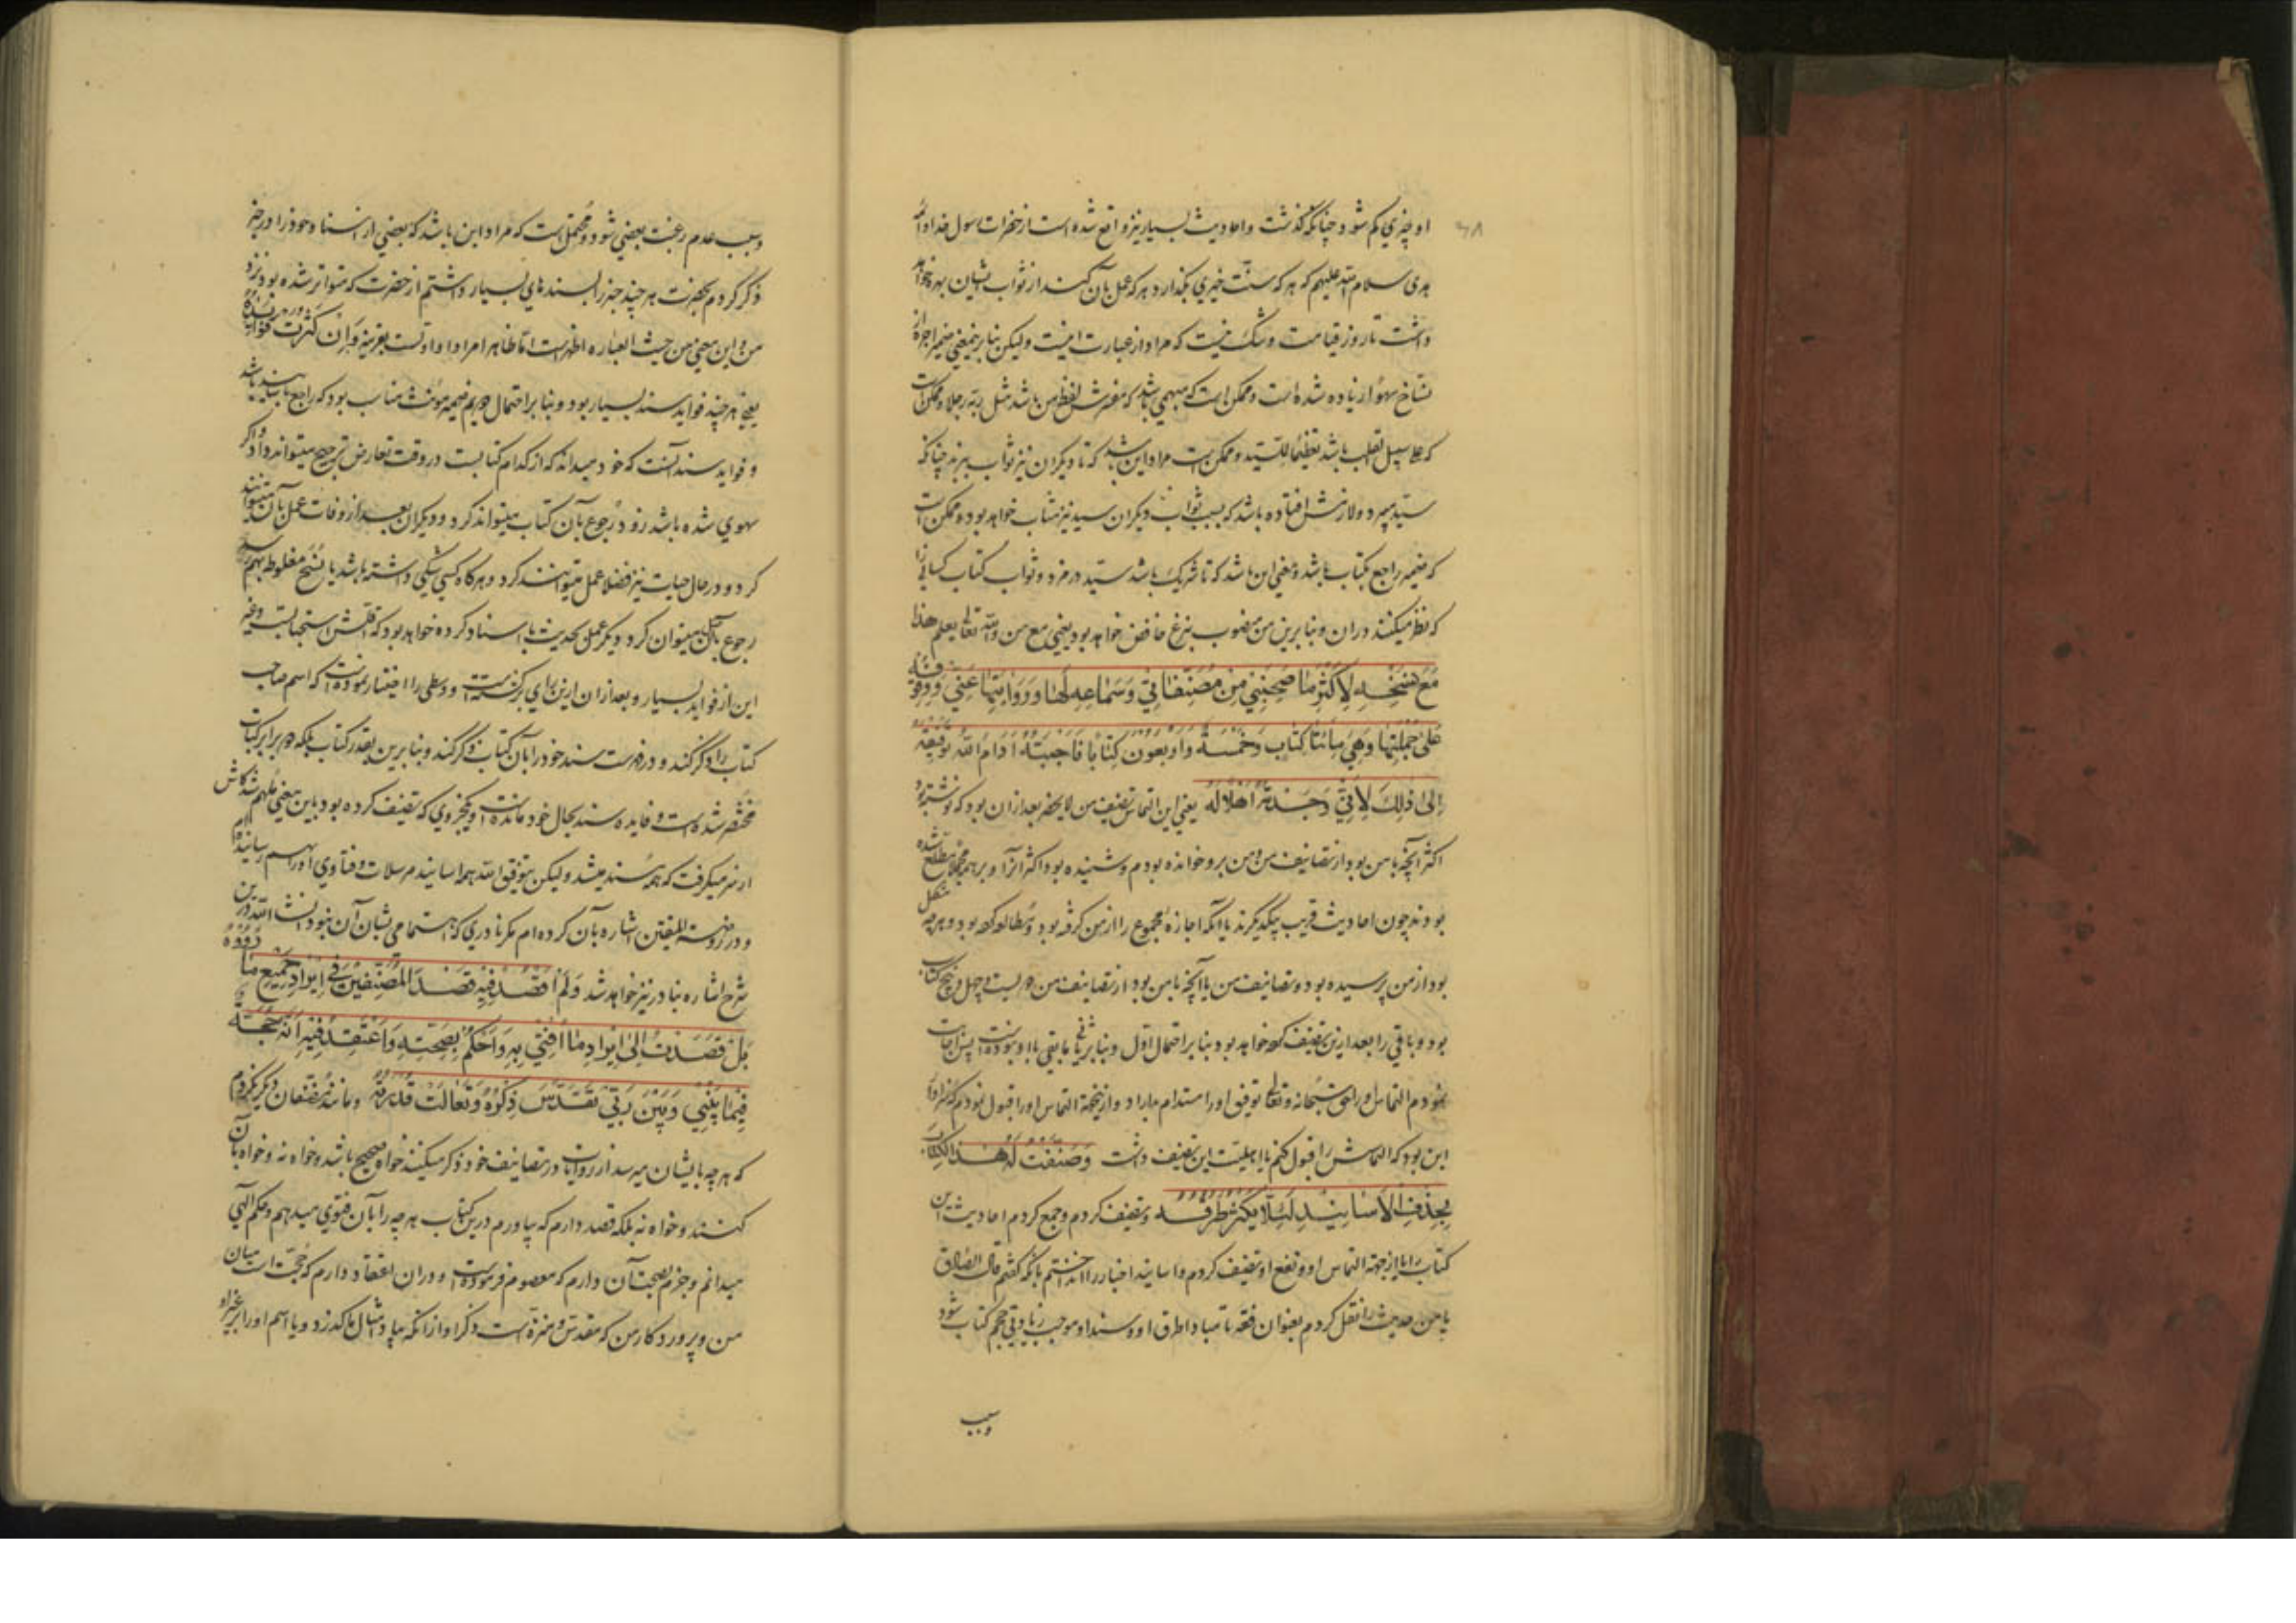 ۶۸
او چیزی کم شود چنانکه گذشت و احادیث بسیار نیز واقع شده است از حضرات رسول خدا و ائمه
هدی سلام الله علیهم که هر که سنت خیری بگذارد هر که عمل بآن کند از ثواب ایشان بهره خواهد
داشت تا روز قیامت و شک نیست که مراد از عبارت اینست ولیکن بنا برینمعنی ضمیر اجره از
نساخ سهوا زیاده شده است و ممکن است که مبهمی باشد که مفسرش لفظ من باشد مثل ربه رجلا و ممکن است
که علی سبیل القلب باشد تعظیما للسید و ممکن است مراد این باشد که تا دیکران نیز ثواب برند چنانکه
سید میبرد و لازمش افتاده باشد که بسبب ثواب دیکران سید نیز مثاب خواهد بود و ممکن است
که ضمیر راجع بکتاب باشد و معنی این باشد که تا شریک باشد سید در مزد و ثواب کتاب کسانی را
که نظر میکنند در ان و بنا برین من منصوب بنزع خافض خواهد بود یعنی مع من والله تعالی یعلم هذا
مَعَ نسْخِهِ لِاَکْثَرِ مَا صَحِبَنِی مِنْ مُصَنَّفَاتِی وَسَمَاعِهِ لَهَا وَرَوَایَتِهَا عَنِّی وَوُقُوفِهِ
عَلیٰ جُمْلَتِهَا وَهِیَ مِائَتَا کِتَابٍ وَخَمْسَةٌ وَاَرْبَعُونَ کِتَابًا فَاَجَبْتُهُ اَدَامَ اللهُ تَوْفِیقَهُ
اِلیٰ ذٰلِکَ لِاَنِّی وَجَدْتُهُ اَهْلًا لَهُ یعنی این التماس تصنیف من لا یحضر بعد از ان بود که نوشته بود
اکثر آنچه با من بود از تصانیف من و من برو خوانده بودم و شنیده بود اکثر آنرا و بر همه مجملا مطلع شده
بودند چون احادیث قریب بیکدیکرند با آنکه اجازه مجموع را از من کرفته بود و مطالعه کرده بود و هر چه مشکل
بود از من پرسیده بود و تصانیف من با آنچه با من بود از تصانیف من دویست و چهل و پنج کتاب
بود و باقی را بعد ازین تصنیف کرده خواهد بود بنا بر احتمال اول و بنا بر ثانی ما بقی با او نبوده است پس اجابت
نمودم التماس او را حق سبحانه و تعالی توفیق او را مستدام دارد و ازینجهة التماس او را قبول نمودم که سزاوار
این بود که التماسش را قبول کنم یا اهلیت این تصنیف داشت وَصَنَّفْتُ لَهُ هٰذَا الْکِتَابَ
بِحَذْفِ الْاَسَانِیدِ لِئَلَّا یَکْثُرَ طُرُقُهُ و تصنیف کردم و جمع کردم احادیث این
کتاب را از جهة التماس او و نفع او تصنیف کردم و اسانید اخبار را انداختم بآنکه گفتم قال الصادق
یا من حدیث را نقل کردم بعنوان فقه تا مبادا طرق او و سند او موجب زیادتی حجم کتاب شود
وسبب
وسبب عدم رغبت بعضی شود و محتمل است که مراد این باشد که بعضی از اسناد خود را در خبر
ذکر کردم بجهت هر چند خبر را بسندهای بسیار داشتم از حضرت که متواتر شده بود نزد
من و این معنی من حیث العباره اظهر است اما ظاهرا مراد او اولست بقرینه وَاِنْ کَثُرَتْ فَوَائِدُهُ
یعنی هر چند فواید سند بسیار بود و بنا بر احتمال دویم ضمیر مؤنث مناسب بود که راجع باسانید باشد
و فواید سند آنست که خود میداند که از کدام کتابست در وقت تعارض ترجیح میتواند داد و اکر
سهوی شده باشد زود رجوع بآن کتاب میتواند کرد و دیکران بعد از وفات عمل بآن میتوانند
کرد و در حال حیات نیز فضلا عمل میتوانند کرد و هرکاه کسی شکی داشته باشد یا نسخ مغلوط بهم رسد
رجوع بآن میتوان کرد دیکر عمل بحدیث با اسناد کرده خواهد بود که اقلش استحبابست و غیر
این از فواید بسیار و بعد از ان ازین رای برکشته است و وسطی را اختیار نموده است که اسم صاحب
کتاب را ذکر کند و در فهرست سند خود را بآن کتاب ذکر کند و بنا برین بقدر کتاب بلکه دو برابر کتاب
مختصر شده است و فایده سند بحال خود مانده است و یکجزوی که تصنیف کرده بود باین معنی ملهم شد کاش
از سر میکرفت که همه مسند میشد ولیکن بتوفیق الله همه اسانید مرسلات و فتاوی او را بهم رسانیده‌ام
و در روضة المتقین اشاره بآن کرده‌ام مکر نادری که اهتمامی بشان آن نبود انشاء الله درین
شرح اشاره بنادر نیز خواهد شد وَلَمْ اَقْصُدْ فِیهِ قَصْدَ الْمُصَنِّفِینَ فِی اِیرَادِ جَمِیعِ مَا رَوَوْهُ
بَلْ قَصَدْتُ اِلیٰ اِیرَادِ مَا اُفْتِی بِهِ وَاَحْکُمُ بِصِحَّتِهِ وَاَعْتَقِدُ فِیهِ اَنَّهُ حُجَّةٌ
فِیمَا بَیْنِی وَبَیْنَ رَبِّی تَقَدَّسَ ذِکْرُهُ وَتَعَالَتْ قُدْرَتُهُ و مانند مصنفان دیکر نکردم
که هر چه بایشان میرسد از روایات در تصانیف خود ذکر میکنند خواه صحیح باشد و خواه نه و خواه بآن
کنند و خواه نه بلکه قصد دارم که بیاورم درین کتاب هر چه را بآن فتوی میدهم و حکم الهی
میدانم و جزم بصحت آن دارم که معصوم فرموده است و در ان اعتقاد دارم که حجت است میان
من و پروردکار من که مقدس و منزه است ذکر او از انکه بیاد امثال ما کذرد و یا اسم او را بر غیر او